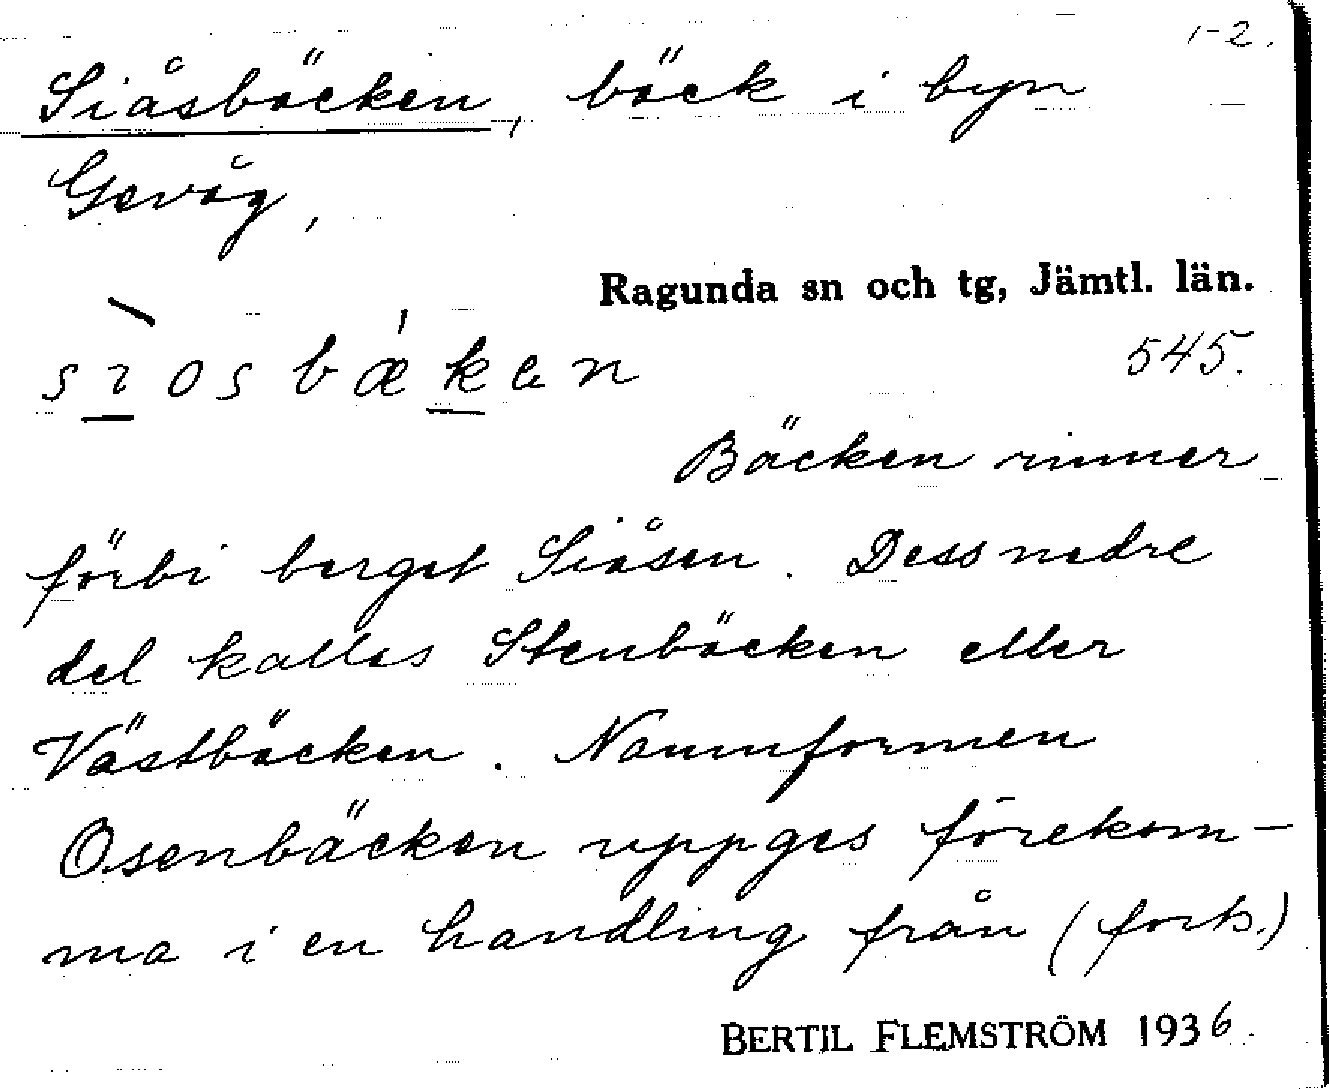 1-2.
Siåsbäcken, bäck i byn
Gevåg,
Ragunda sn och tg, Jämtl. län.
sìosbǽken
545.
Bäcken rinner
förbi berget Siåsen. Dess nedre
del kallas Stenbäcken eller
Västbäcken. Namnformen
Osenbäcken uppges förekom-
ma i en handling från (forts.)
BERTIL FLEMSTRÖM 1936.